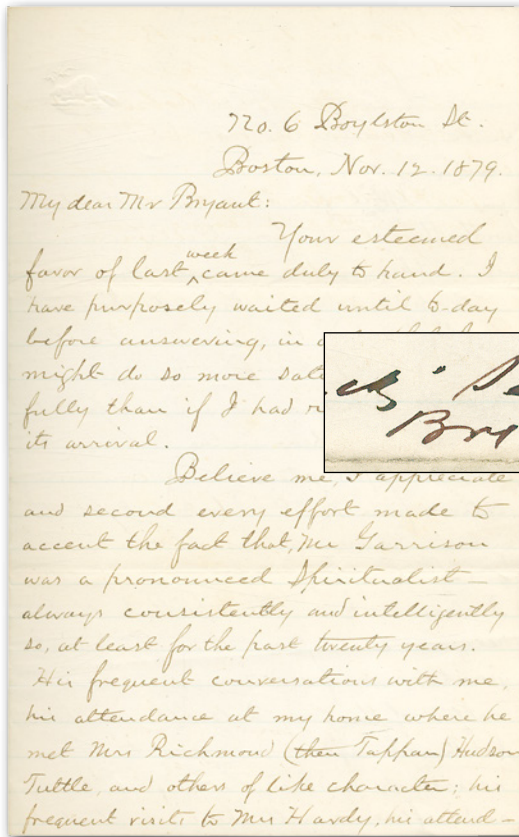 No. 6 Boylston St.
Boston, Nov. 12. 1879.
My dear Mr Bryant:
Your esteemed
favor of last week came duly to hand. I
have purposely waited until to-day
before answering, in
might do so more
fully than if I had
its arrival.
Believe me, I appreciate
and second every effort made to
accent the fact that, Mr Garrison
was a pronounced Spiritualist —
always consistently and intelligently
so, at least for the past twenty years.
His frequent conversations with me,
his attendance at my home where he
met Mrs Richmond (then Tappan) Hudson
Tuttle, and others of like character; his
frequent visits to Mrs Hardy, his attend-